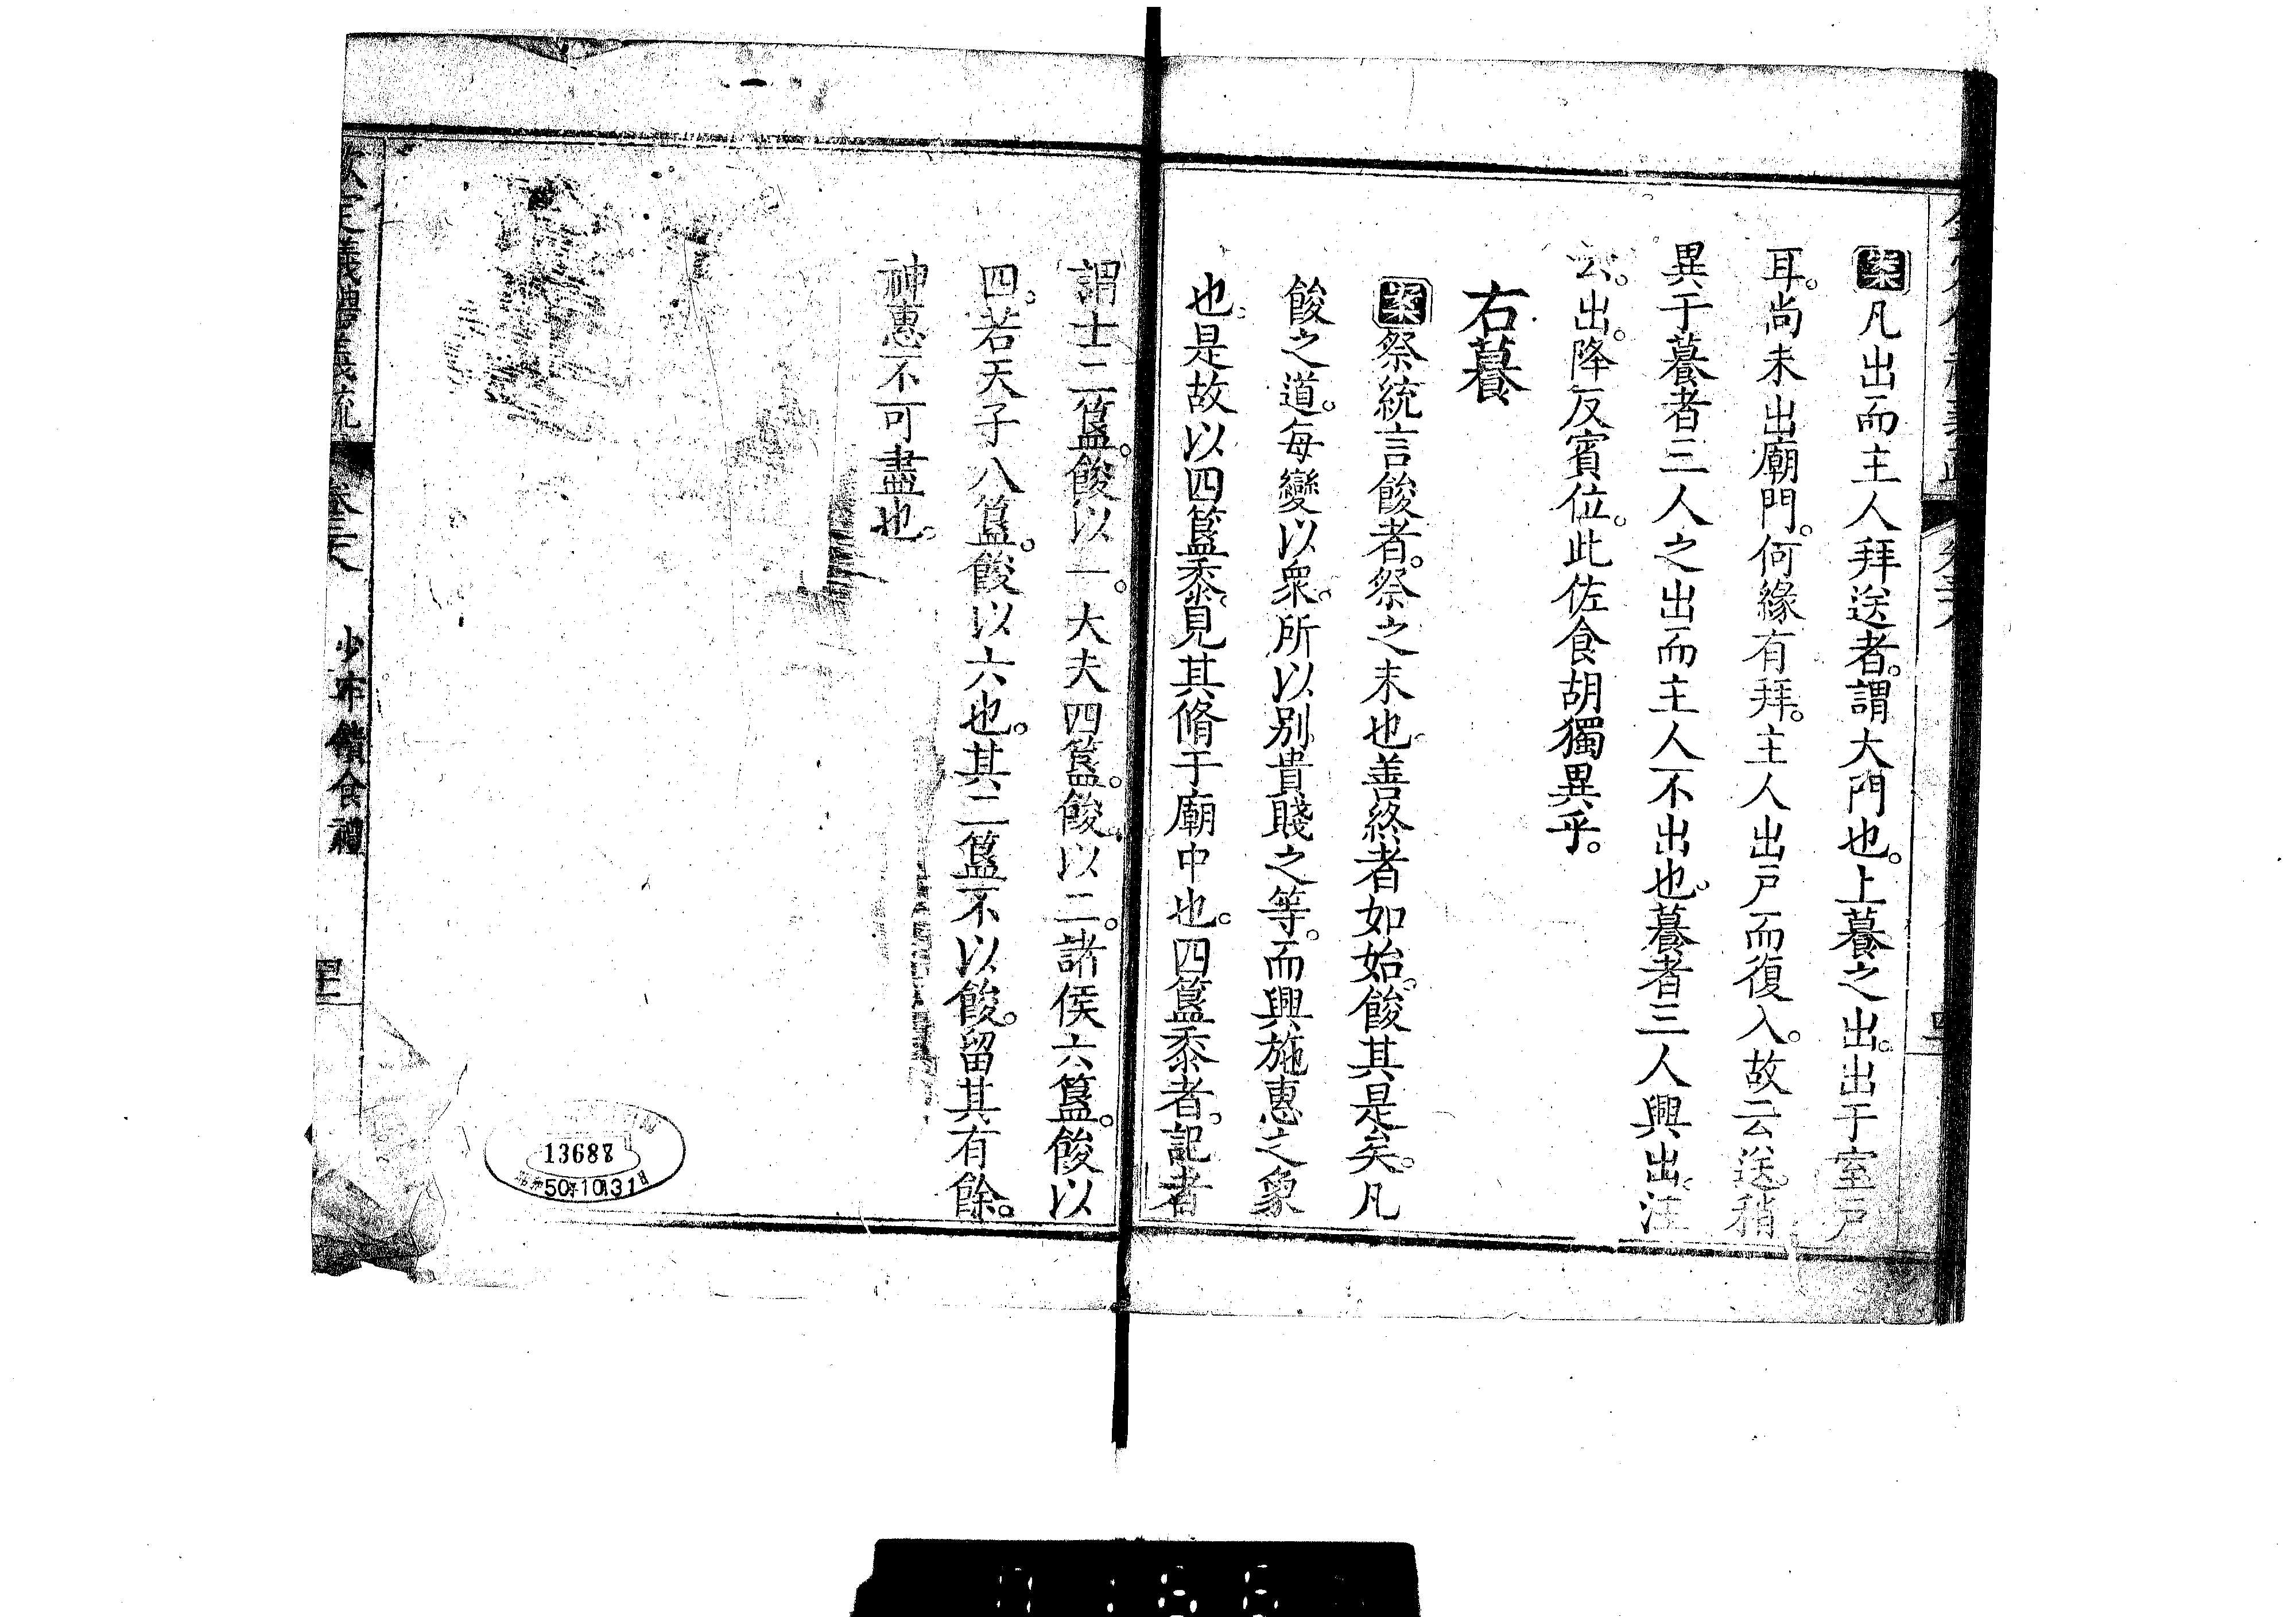 案凡出而主人拜送者。謂大門也。上䉵之出。出于室戸
耳。尚未出廟門。何緣有拜。主人出戸而復入。故云送。稍
異于䉵者三人之出而主人不出也。䉵者三人興出。注
云。出。降反賓位。此佐食胡獨異乎。
右䉵
案祭統言餕者。祭之末也。善終者如始。餕其是矣。凡
餕之道。每變以衆。所以别貴賤之等。而興施惠之象
也。是故以四簋黍。見其脩于廟中也。四簋黍者。記者
謂士二簋。餕以一。大夫四簋。餕以二。諸侯六簋。餕以
四。若天子八簋。餕以六也。其二簋不以餕。留其有餘。
神惠不可盡也。
欽定儀禮義疏 卷三八 少牢饋食禮
13688
50年10月31日